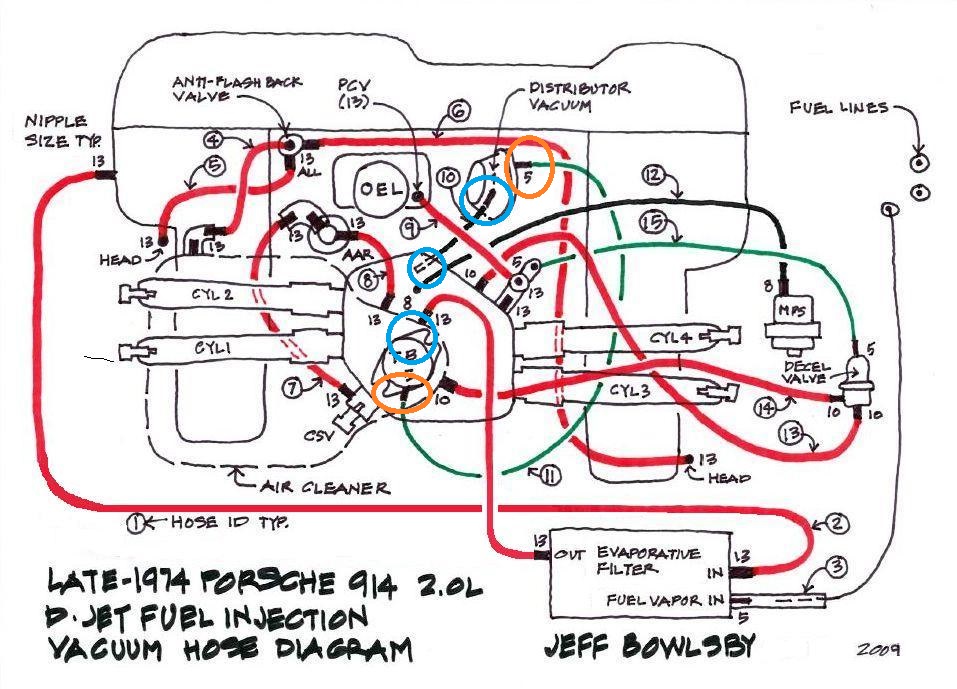 ANTI-FLASHBACK
VALVE
PCV
(13)
DISTRIBUTOR
VACUUM
FUEL LINES
NIPPLE
SIZE TYP.
13
4
5
6
13
ALL
OEL
10
5
12
15
9
13
HEAD
13
13
13
AAR
8
10
5
13
8
13
13
8
MPS
CYL 2
CYL 1
CYL 4
CYL 3
B
5
DECEL
VALVE
7
13
CSV
10
14
10
10
13
13
HEAD
11
AIR CLEANER
1 HOSE ID TYP.
2
3
13
OUT
EVAPORATIVE
FILTER
13
IN
FUEL VAPOR IN
5
LATE-1974 PORSCHE 914 2.0L
D-JET FUEL INJECTION
VACUUM HOSE DIAGRAM
JEFF BOWLSBY
2009